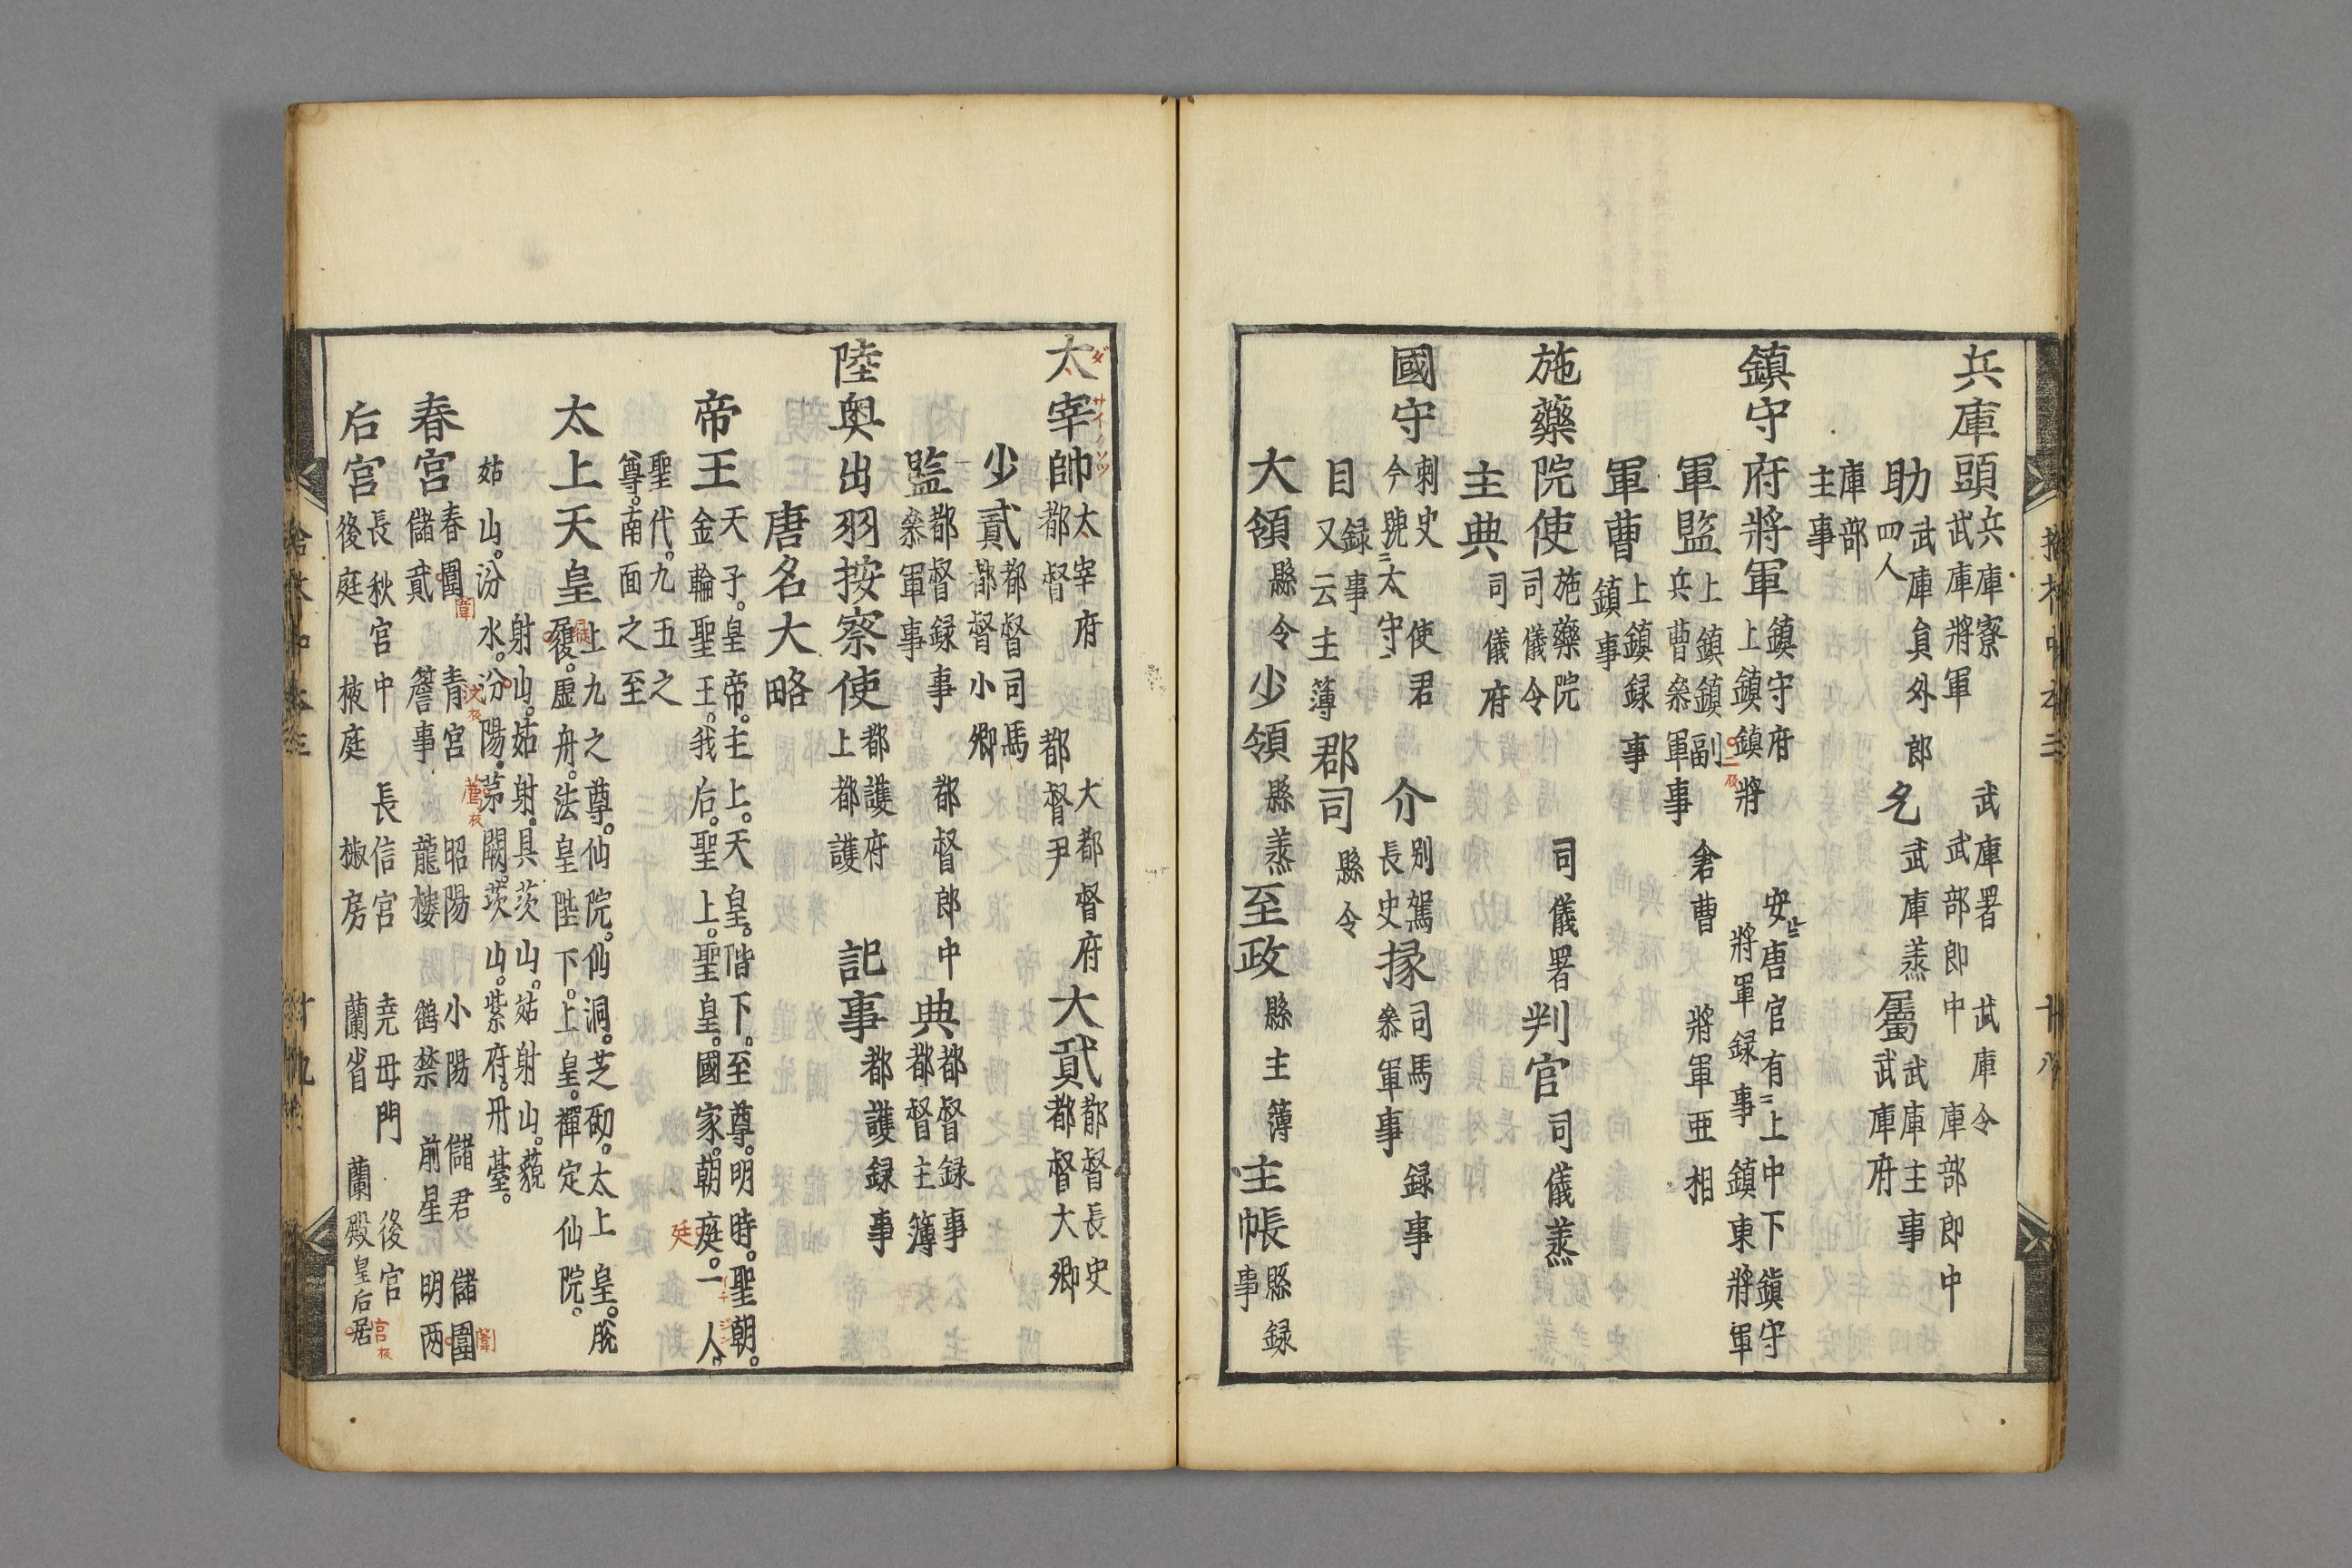 兵庫頭 兵庫寮 武庫將軍 武庫署 武部郎中 武庫令 庫部郎中
助 武庫員外郎 四人 允 武庫丞 屬 武庫主事 武庫府
庫部 主事
鎮守府將軍 鎮守府 上鎮鎮將 安ニ唐官有ニ上中下鎭守 將軍録事 鎮東將軍
軍監 上鎮鎮副 兵曹叅軍事 倉曹 將軍亜相
軍曹 上鎮録事 鎮事
施藥院使 施藥院 司儀令 司儀署 判官 司儀丞
主典 司儀府
國守 刺史 今號ニ太守 使君 介 別駕 長史 掾 司馬 叅軍事 録事
目 録事 又云主薄 郡司 縣令
大領 縣令 少領 縣丞 至政 縣主簿 主帳 縣録事
太宰帥 太宰府 都督 大都督府 都督尹 大貳 都督長史 都督大卿
少貳 都督司馬 都督小卿
監 都督録事 叅軍事 都督郎中 典 都督録事 都督主簿
陸奥出羽按察使 都護府 上都護 記事 都護録事
唐名大略
帝王 天子。皇帝。主上。天皇。階下。至尊。明時。聖朝。 金輪聖王。我后。聖上。聖皇。國家。朝庭。一人。
聖代。九五之尊。南面之至
太上天皇 上九之尊。仙院。仙洞。芝砌。太上皇。脫履。虚舟。法皇陛下。上皇。禪定仙院。
射山。姑射。具茨山。姑射山。藐姑山。汾水。汾陽。茅闕。茨山。紫府。丹臺。
春宮 春圍 儲貳 青宮 詹事 昭陽 龍樓 小陽 鶴禁 儲君 前星 儲圍 明両
后宮 長秋宮 後庭 中掖庭 長信宮 椒房 堯母門 蘭省 後宮 蘭殿 皇后居